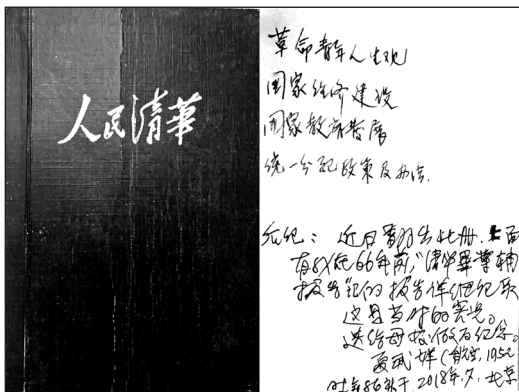 人民清華
革命青年人生观
国家经济建设
国家教育
统一分配政策及办法.
后纪：近日翻出此册.上面
有 66年前"清华畢業輔
报告 的报告详细纪录
这是当时的实况。
送给母校做为纪念。
夏武祥(航空.1952
时年86 于2018年.9.北京